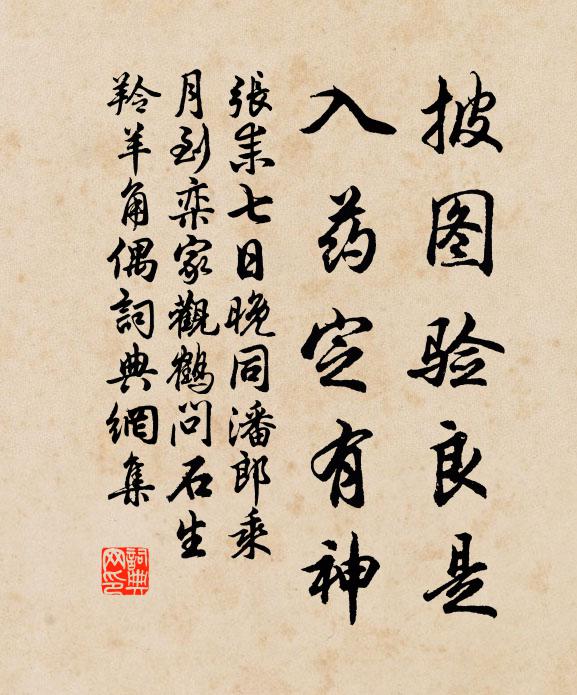 披图验良是
入药定有神
張耒七日晚同潘郎乘
月到栾家觀鶴问石生
羚羊角偶詞典網集
詞典网印